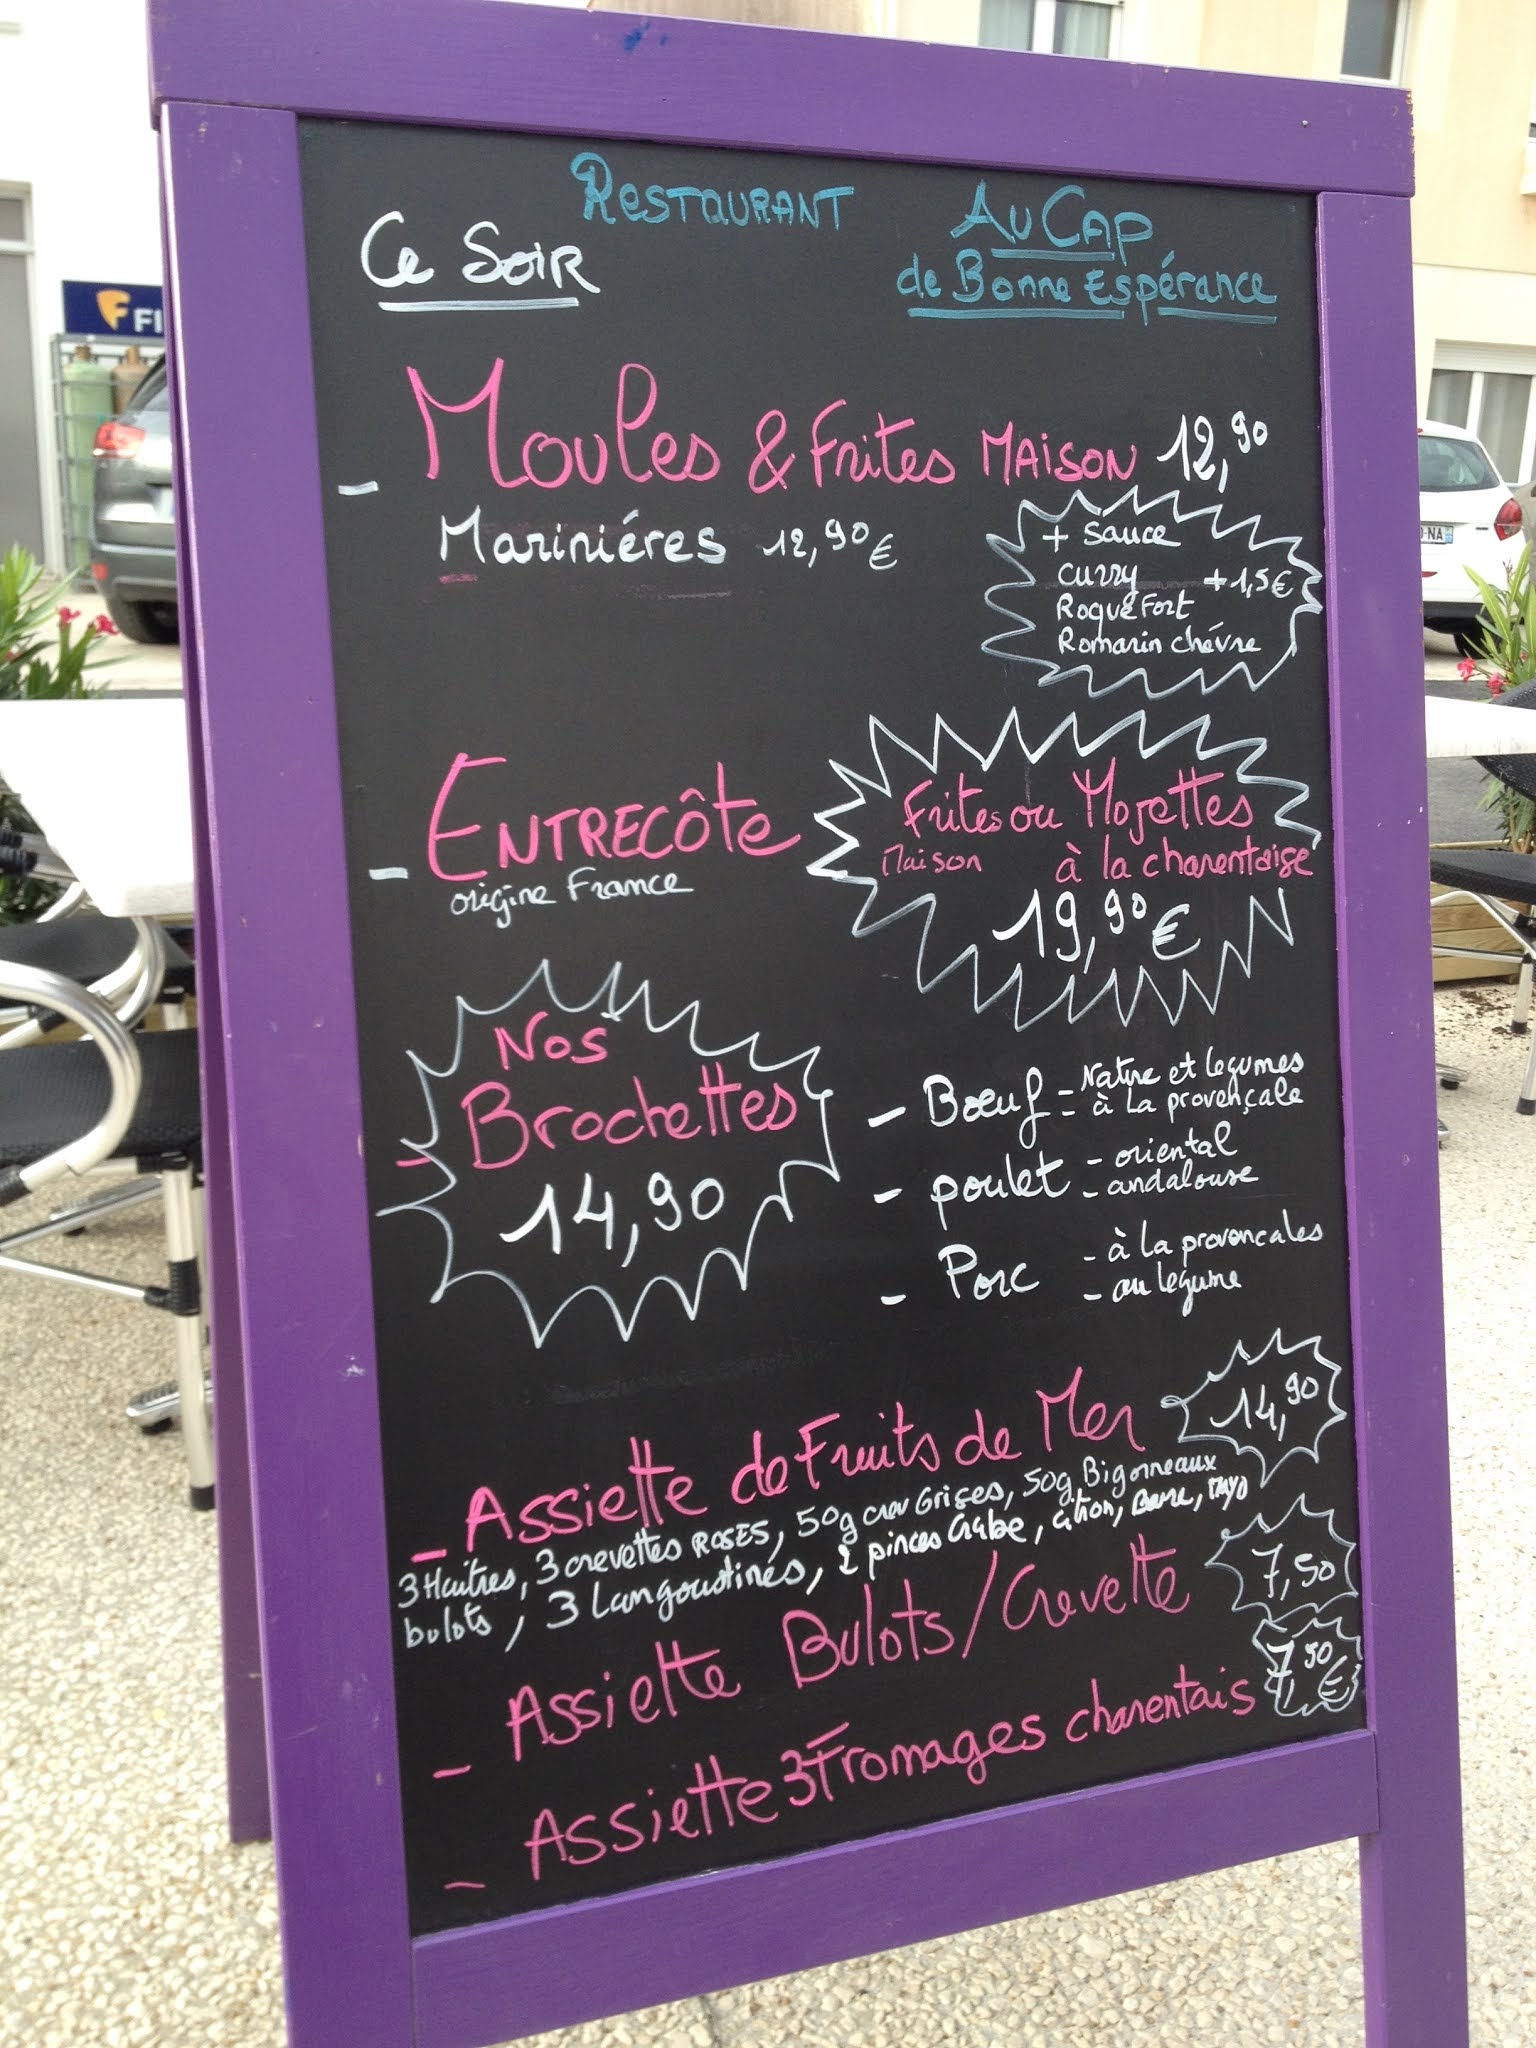 Restaurant Au Cap
de Bonne Espérance
Ce Soir
- Moules & Frites Maison 12,90
Mariniéres 12,90€
+ Sauce
Curry +1,5€
Roquefort
Romarin chévre
- Entrecôte
origine France
Frites ou Mojettes
Maison à la charentaise
19,90€
- Nos
Brochettes
14,90
- Bœuf = Nature et legumes
à la provençale
- poulet - oriental
- andalouse
- Porc - à la provencales
- au legume
- Assiette de Fruits de Mer 14,90
3 Huitres, 3 crevettes Roses, 50g crev Grises, 50g Bigorneaux
bulots, 3 Langoustines, 2 pinces Crabe, citron, Mayo
- Assiette Bulots/Crevette 7,50
- Assiette 3 Fromages charentais 7,50€
FI
-NA